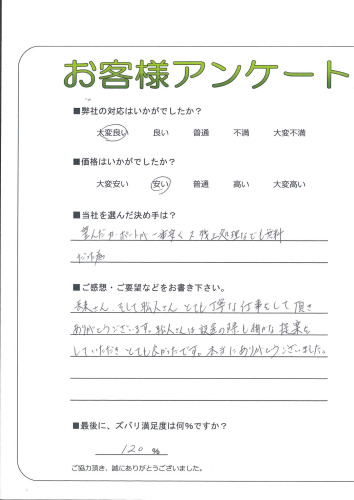 お客様アンケート
■弊社の対応はいかがでしたか？
大変良い 良い 普通 不満 大変不満
■価格はいかがでしたか？
大変安い 安い 普通 高い 大変高い
■当社を選んだ決め手は？
望んだカーポートが一番安く、残土処理なども無料
だった為
■ご感想・ご要望などをお書き下さい。
さん、そして松人さん とても丁寧な仕事をして頂き
ありがとうございます。松人さんは設置の際も細かな提案を
していただき とても良かったです。本当にありがとうございました。
■最後に、ズバリ満足度は何％ですか？
120 %
ご協力頂き、誠にありがとうございました。